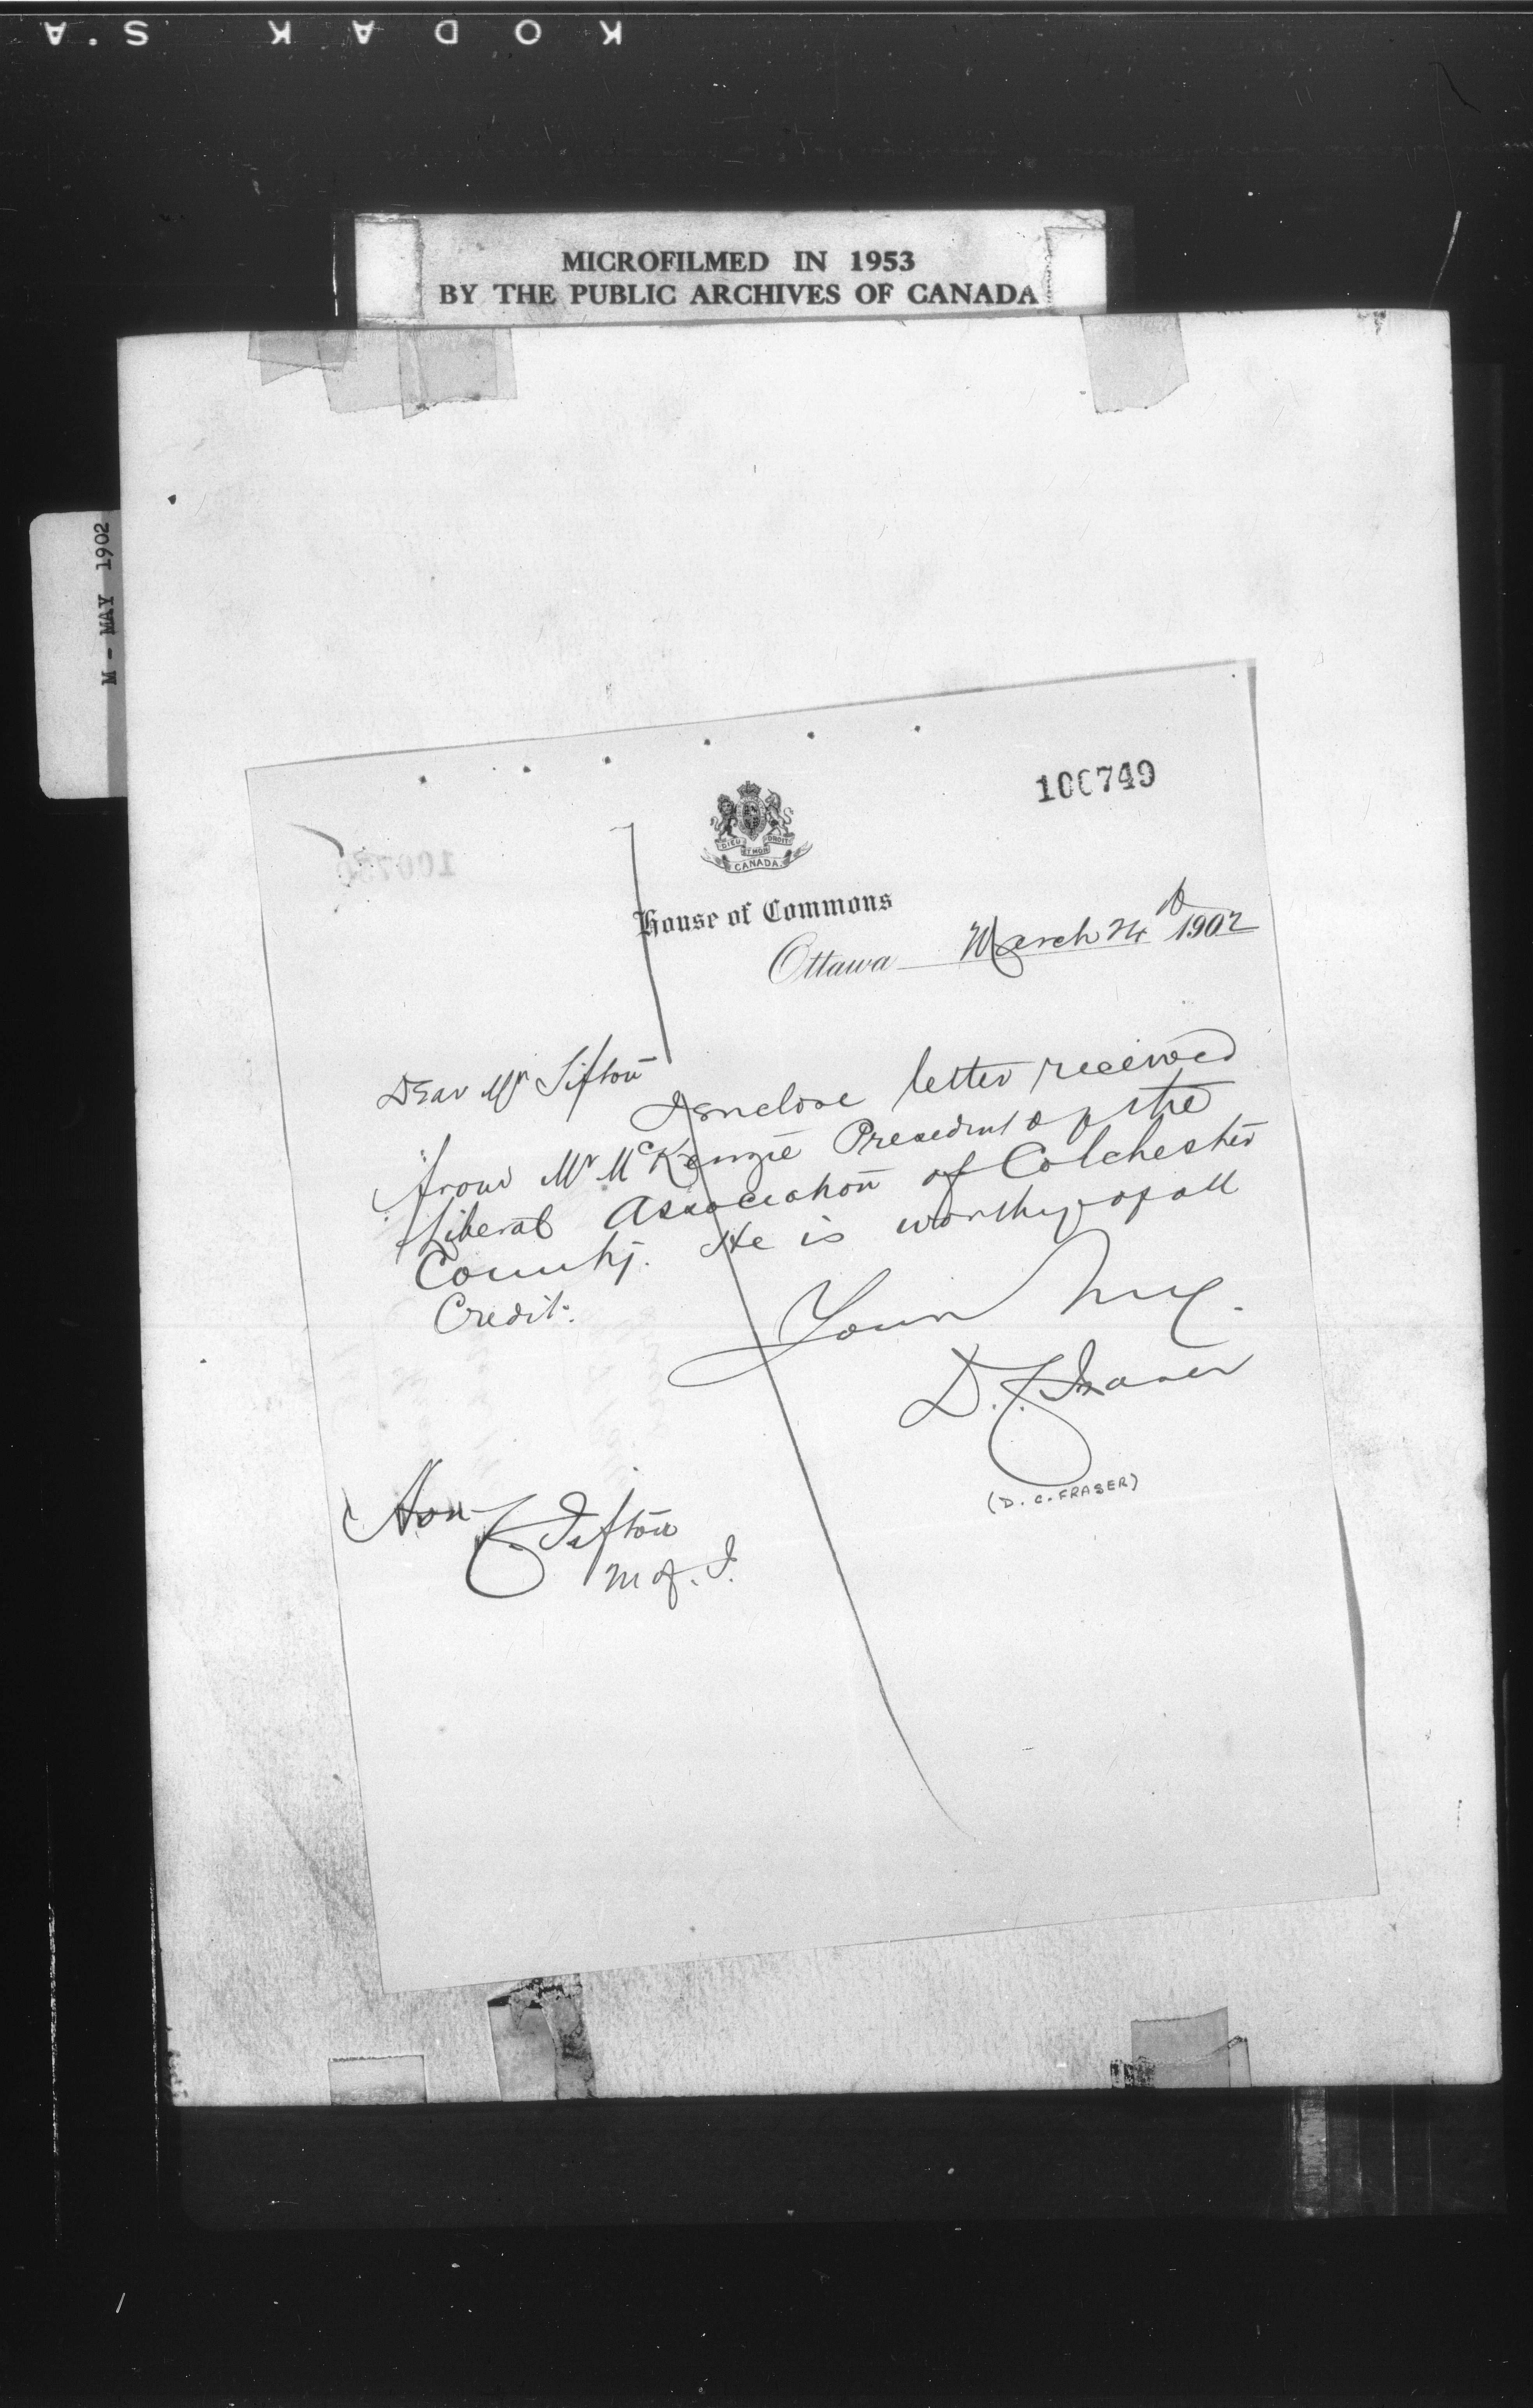 KODAK S.A
MICROFILMED IN 1953
BY THE PUBLIC ARCHIVES OF CANADA
M - MAY 1902
100749
100750
DIEU ET MON DROIT
CANADA
House of Commons
Ottawa March 24th 1902
Dear Mr Sifton
I enclose letter received
from Mr McKenzie President of the
Liberal Association of Colchester
County. He is worthy of all
Credit.
Yours truly.
D.C. Fraser
(D. C. FRASER)
Hon C. Sifton
M of. I.